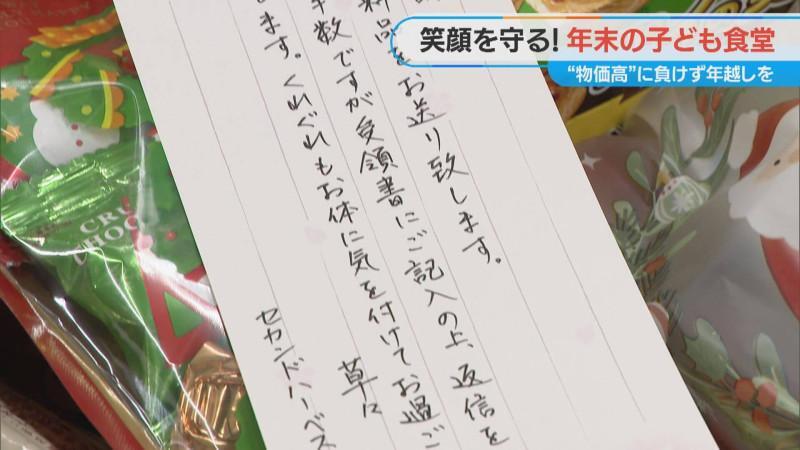 笑顔を守る！年末の子ども食堂
“物価高”に負けず年越しを
料品をお送り致します。
手数ですが受領書にご記入の上、返信を
ます。くれぐれもお体に気を付けてお過ご
草々
セカンドハーベス
CRU
CHOC